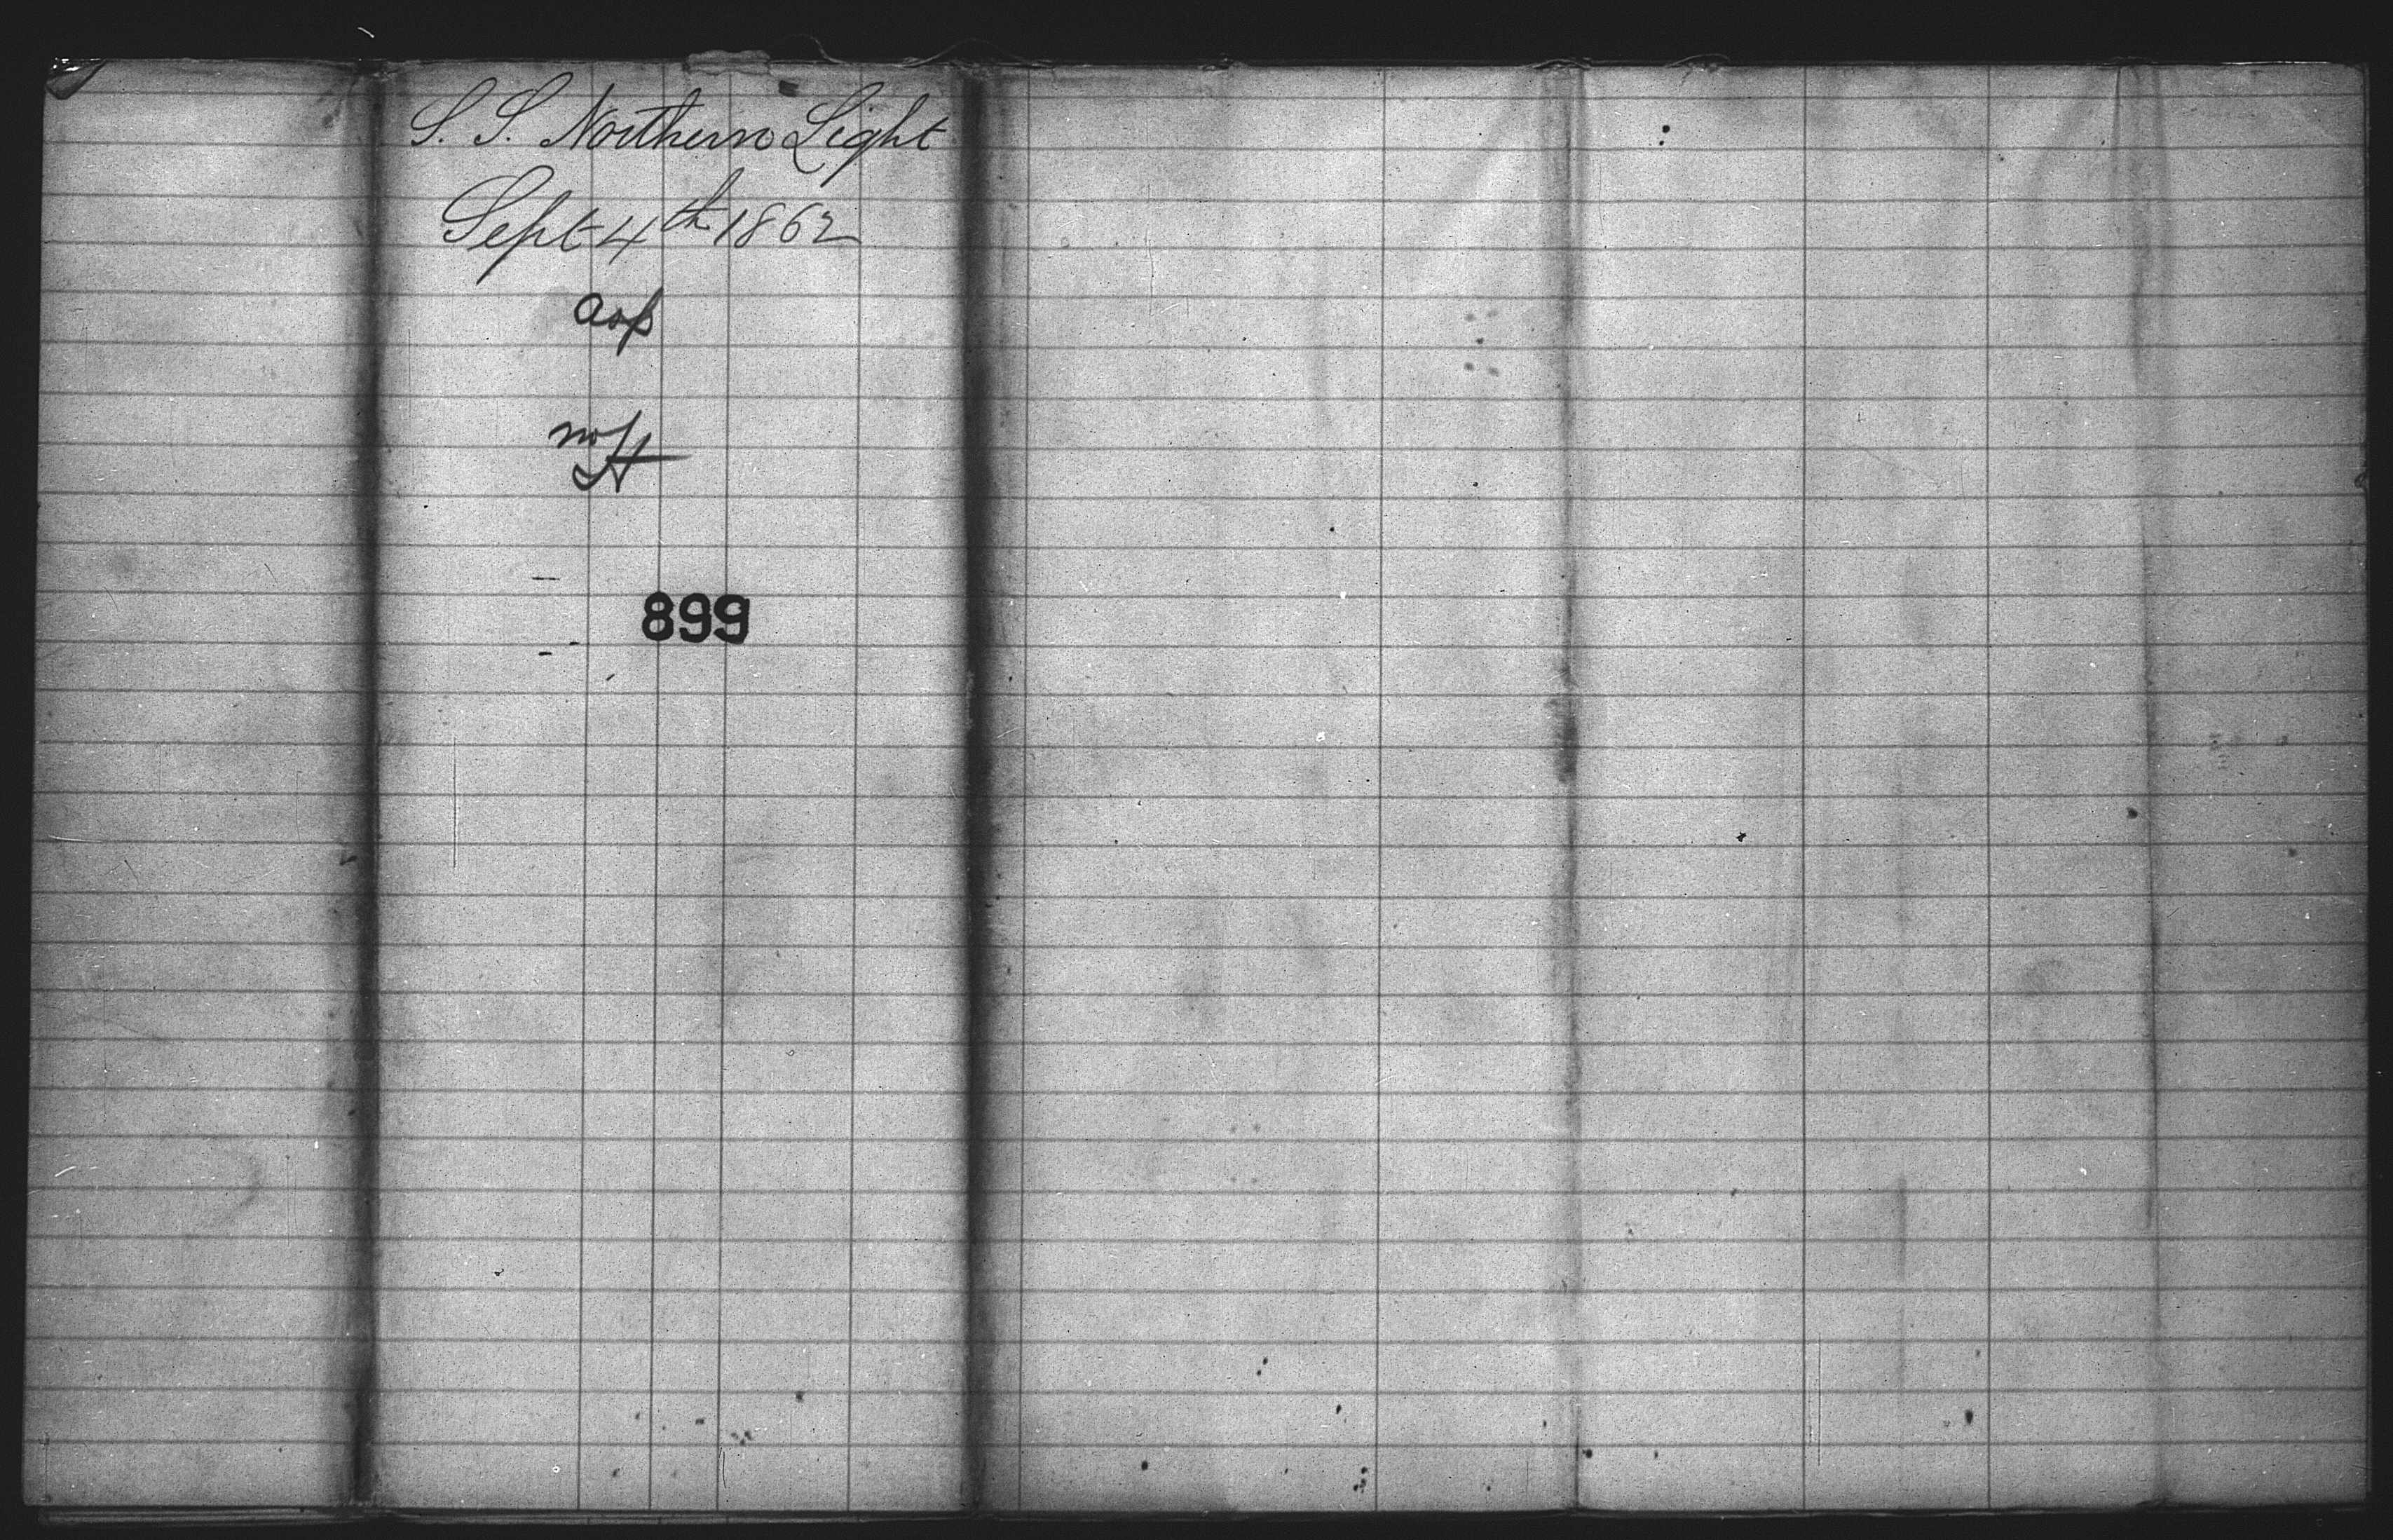 S. S. Northern Light
Sept 4th 1862
Asp
899